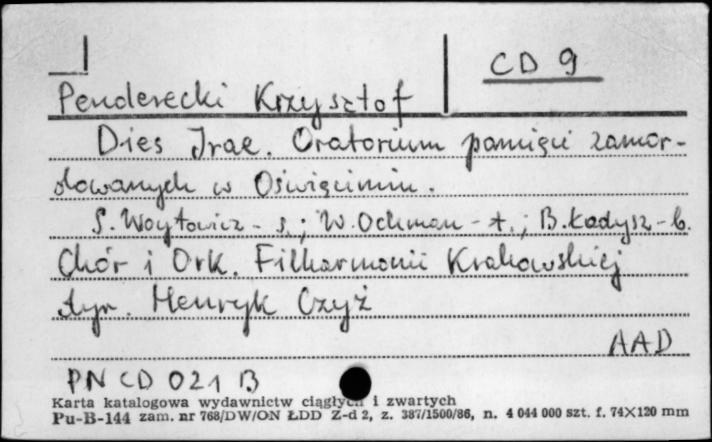 CD 9
Penderecki Krzysztof
Dies Irae. Oratorium pamięci zamor-
dowanych w Oświęcimiu.
S. Woytowicz - s.; W. Ochman - t.; B. Ładysz - b.
Chór i Ork. Filharmonii Krakowskiej
dyr. Henryk Czyż
AAD
PN CD 021 B
Karta katalogowa wydawnictw ciągłych i zwartych
Pu-B-144 zam. nr 768/DW/ON ŁDD Z-d 2, z. 387/1500/86, n. 4 044 000 szt. f. 74×120 mm